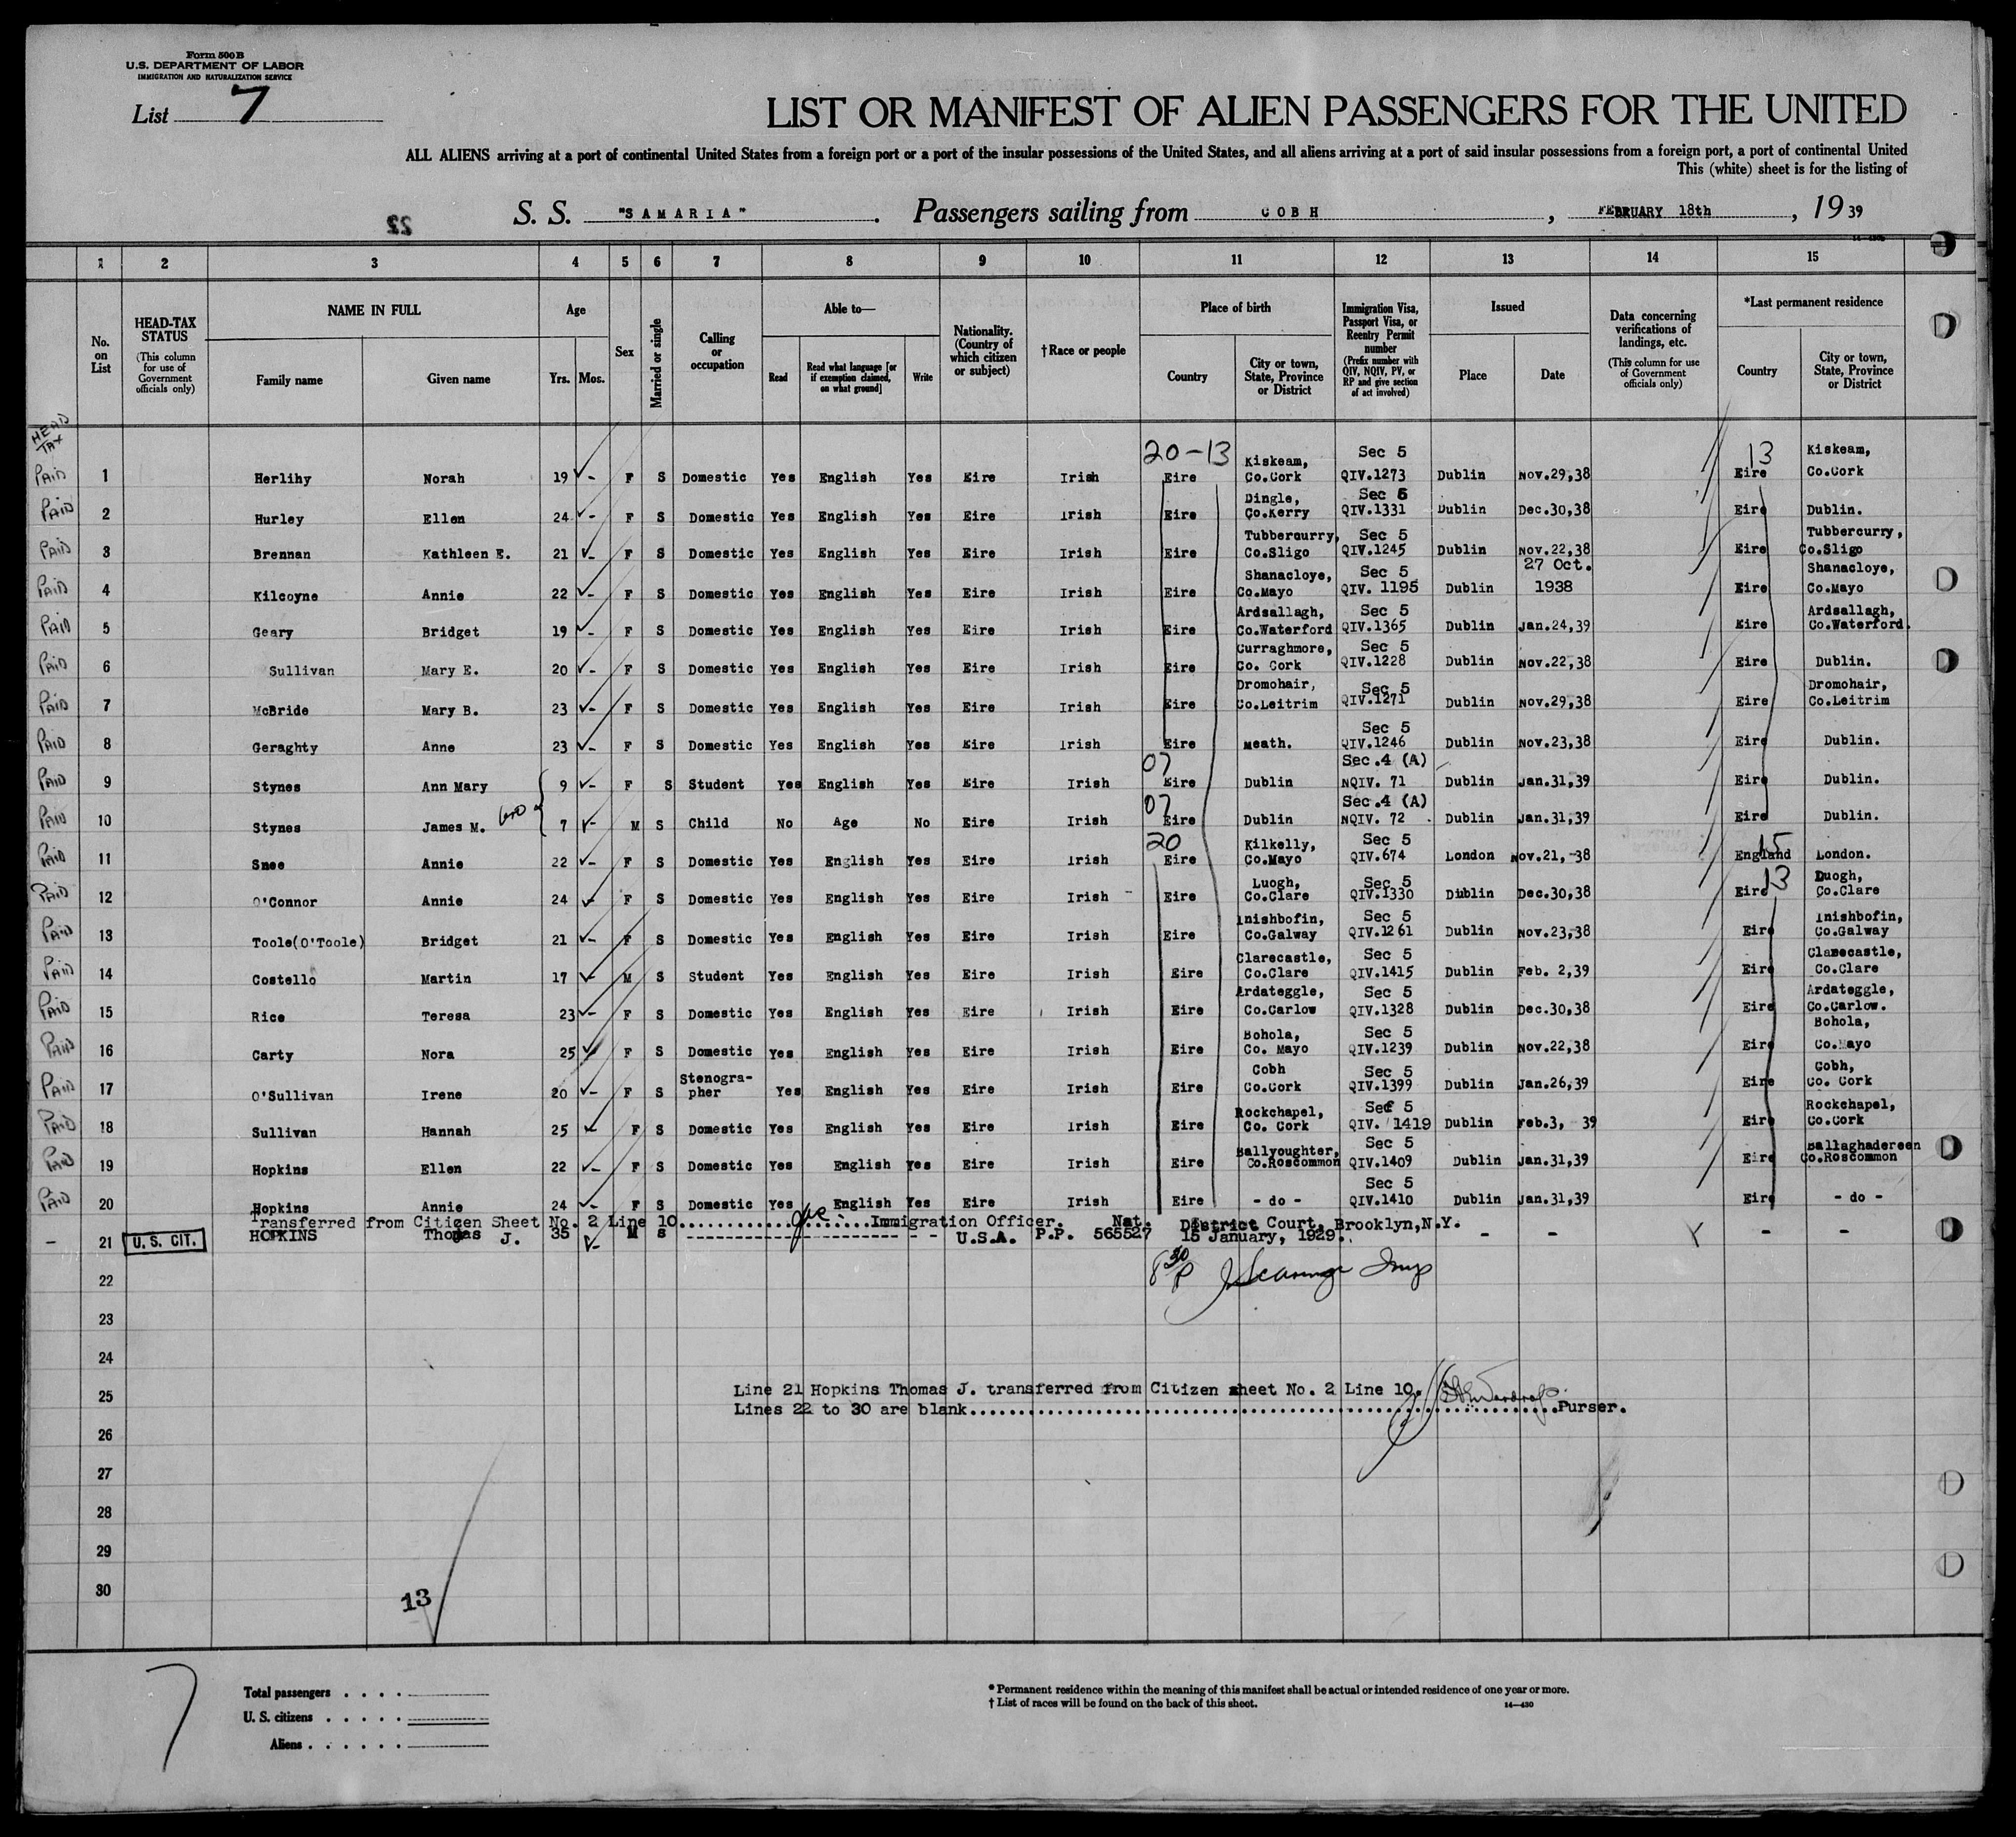 Form 500B
U.S. DEPARTMENT OF LABOR
IMMIGRATION AND NATURALIZATION SERVICE
List 7
LIST OR MANIFEST OF ALIEN PASSENGERS FOR THE UNITED
ALL ALIENS arriving at a port of continental United States from a foreign port or a port of the insular possessions of the United States, and all aliens arriving at a port of said insular possessions from a foreign port, a port of continental United
This (white) sheet is for the listing of
22
S. S. "SAMARIA". Passengers sailing from COBH, FEBRUARY 18th, 1939
1 2 3 4 5 6 7 8 9 10 11 12 13 14 15
No. on List
HEAD-TAX STATUS (This column for use of Government officials only)
NAME IN FULL Family name Given name
Age Yrs. Mos.
Sex
Married or single
Calling or occupation
Able to— Read Read what language [or if exemption claimed, on what ground] Write
Nationality. (Country of which citizen or subject)
†Race or people
Place of birth Country City or town, State, Province or District
Immigration Visa, Passport Visa, or Reentry Permit number (Prefix number with QIV, NQIV, PV, or RP and give section of act involved)
Issued Place Date
Data concerning verifications of landings, etc. (This column for use of Government officials only)
*Last permanent residence Country City or town, State, Province or District
HEAD TAX
20-13 13
PAID 1 Herlihy Norah 19 ✓ - F S Domestic Yes English Yes Eire Irish Eire Kiskeam, Co.Cork Sec 5 QIV.1273 Dublin Nov.29,38 Eire Kiskeam, Co.Cork
PAID 2 Hurley Ellen 24 ✓ - F S Domestic Yes English Yes Eire Irish Eire Dingle, Co.Kerry Sec 5 QIV.1331 Dublin Dec.30,38 Eire Dublin.
PAID 3 Brennan Kathleen E. 21 ✓ - F S Domestic Yes English Yes Eire Irish Eire Tubbercurry, Co.Sligo Sec 5 QIV.1245 Dublin Nov.22,38 Eire Tubbercurry, Co.Sligo
PAID 4 Kilcoyne Annie 22 ✓ - F S Domestic Yes English Yes Eire Irish Eire Shanacloye, Co.Mayo Sec 5 QIV. 1195 Dublin 27 Oct. 1938 Eire Shanacloye, Co.Mayo
PAID 5 Geary Bridget 19 ✓ - F S Domestic Yes English Yes Eire Irish Eire Ardsallagh, Co.Waterford Sec 5 QIV.1365 Dublin Jan.24,39 Eire Ardsallagh, Co.Waterford.
PAID 6 Sullivan Mary E. 20 ✓ - F S Domestic Yes English Yes Eire Irish Eire Curraghmore, Co. Cork Sec 5 QIV.1228 Dublin Nov.22,38 Eire Dublin.
PAID 7 McBride Mary B. 23 ✓ - F S Domestic Yes English Yes Eire Irish Eire Dromohair, Co.Leitrim Sec 5 QIV.1271 Dublin Nov.29,38 Eire Dromohair, Co.Leitrim
PAID 8 Geraghty Anne 23 ✓ - F S Domestic Yes English Yes Eire Irish Eire Meath. Sec 5 QIV.1246 Dublin Nov.23,38 Eire Dublin.
PAID 9 Stynes Ann Mary 9 ✓ - F S Student Yes English Yes Eire Irish 07 Eire Dublin Sec.4 (A) NQIV. 71 Dublin Jan.31,39 Eire Dublin.
PAID 10 Stynes James M. 7 ✓ - M S Child No Age No Eire Irish 07 Eire Dublin Sec.4 (A) NQIV. 72 Dublin Jan.31,39 Eire Dublin.
PAID 11 Snee Annie 22 ✓ - F S Domestic Yes English Yes Eire Irish 20 Eire Kilkelly, Co.Mayo Sec 5 QIV.674 London Nov.21,-38 15 England London.
PAID 12 O'Connor Annie 24 ✓ - F S Domestic Yes English Yes Eire Irish Eire Luogh, Co.Clare Sec 5 QIV.1330 Dublin Dec.30,38 13 Eire Luogh, Co.Clare
PAID 13 Toole(O'Toole) Bridget 21 ✓ - F S Domestic Yes English Yes Eire Irish Eire Inishbofin, Co.Galway Sec 5 QIV.1261 Dublin Nov.23,38 Eire Inishbofin, Co.Galway
PAID 14 Costello Martin 17 ✓ - M S Student Yes English Yes Eire Irish Eire Clarecastle, Co.Clare Sec 5 QIV.1415 Dublin Feb. 2,39 Eire Clarecastle, Co.Clare
PAID 15 Rice Teresa 23 ✓ - F S Domestic Yes English Yes Eire Irish Eire Ardateggle, Co.Carlow Sec 5 QIV.1328 Dublin Dec.30,38 Eire Ardateggle, Co.Carlow.
PAID 16 Carty Nora 25 ✓ F S Domestic Yes English Yes Eire Irish Eire Bohola, Co. Mayo Sec 5 QIV.1239 Dublin Nov.22,38 Eire Bohola, Co.Mayo
PAID 17 O'Sullivan Irene 20 ✓ - F S Stenogra-pher Yes English Yes Eire Irish Eire Cobh Co.Cork Sec 5 QIV.1399 Dublin Jan.26,39 Eire Cobh, Co. Cork
PAID 18 Sullivan Hannah 25 ✓ - F S Domestic Yes English Yes Eire Irish Eire Rockchapel, Co. Cork Sec 5 QIV. 1419 Dublin Feb.3, 39 Eire Rockchapel, Co.Cork
PAID 19 Hopkins Ellen 22 ✓ - F S Domestic Yes English Yes Eire Irish Eire Ballyoughter, Co.Roscommon Sec 5 QIV.1409 Dublin Jan.31,39 Eire Ballaghadereen Co.Roscommon
PAID 20 Hopkins Annie 24 ✓ - F S Domestic Yes English Yes Eire Irish Eire - do - Sec 5 QIV.1410 Dublin Jan.31,39 Eire - do -
Transferred from Citizen Sheet No. 2 Line 10. Immigration Officer. Nat. District Court, Brooklyn,N.Y.
- 21 U. S. CIT. HOPKINS Thomas J. 35 ✓ - M S U.S.A. P.P. 565527 15 January, 1929. - - - -
22
23
24
25
26
27
28
29
30
8 30 P Insp
Line 21 Hopkins Thomas J. transferred from Citizen sheet No. 2 Line 10.
Lines 22 to 30 are blank Purser.
13
7
Total passengers
U. S. citizens
Aliens
* Permanent residence within the meaning of this manifest shall be actual or intended residence of one year or more.
† List of races will be found on the back of this sheet. 14—430